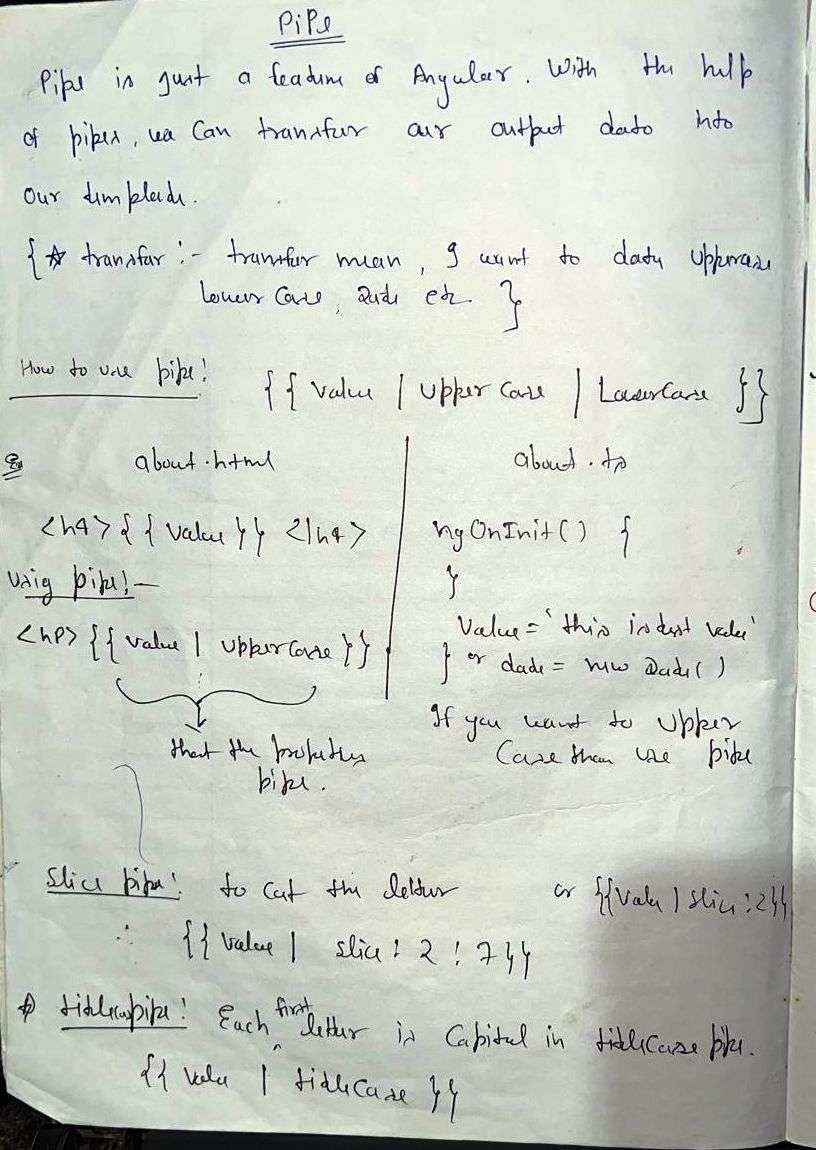 PiPe
Pipe is just a feature of Angular. With the help
of pipes, we Can transfer our output data into
our template.
{ ☆ transfer :- transfer mean, I want to data Uppercase
Lower Case, Date etc. }
How to use pipe! { { Value | Upper Case | LowerCase } }
Ex about.html about.ts
<h4> { { Value } } </h4> ngOnInit() {
}
Using pipe! —
<hp> { { Value | UpperCase } } Value = 'this is test value'
} or date = new Date()
If you want to Upper
that the properties Case than use pipe
pipe.
Slice pipe! to cut the letter or {{Value | slice : 2}}
∴ {{ Value | slice : 2 : 7 }}
titlecapipe! Each first letter is Capital in titleCase pipe.
{{ Value | titleCase }}